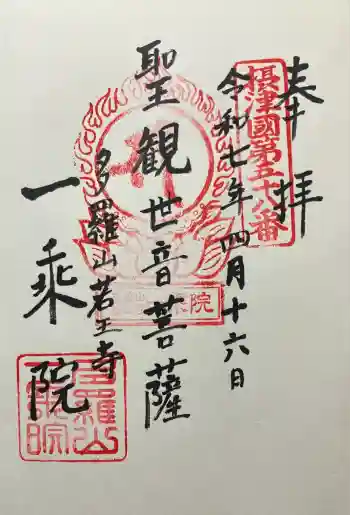 奉拝
摂津國第五十八番
令和七年四月十六日
聖観世音菩薩
多羅山若王寺
一乗院